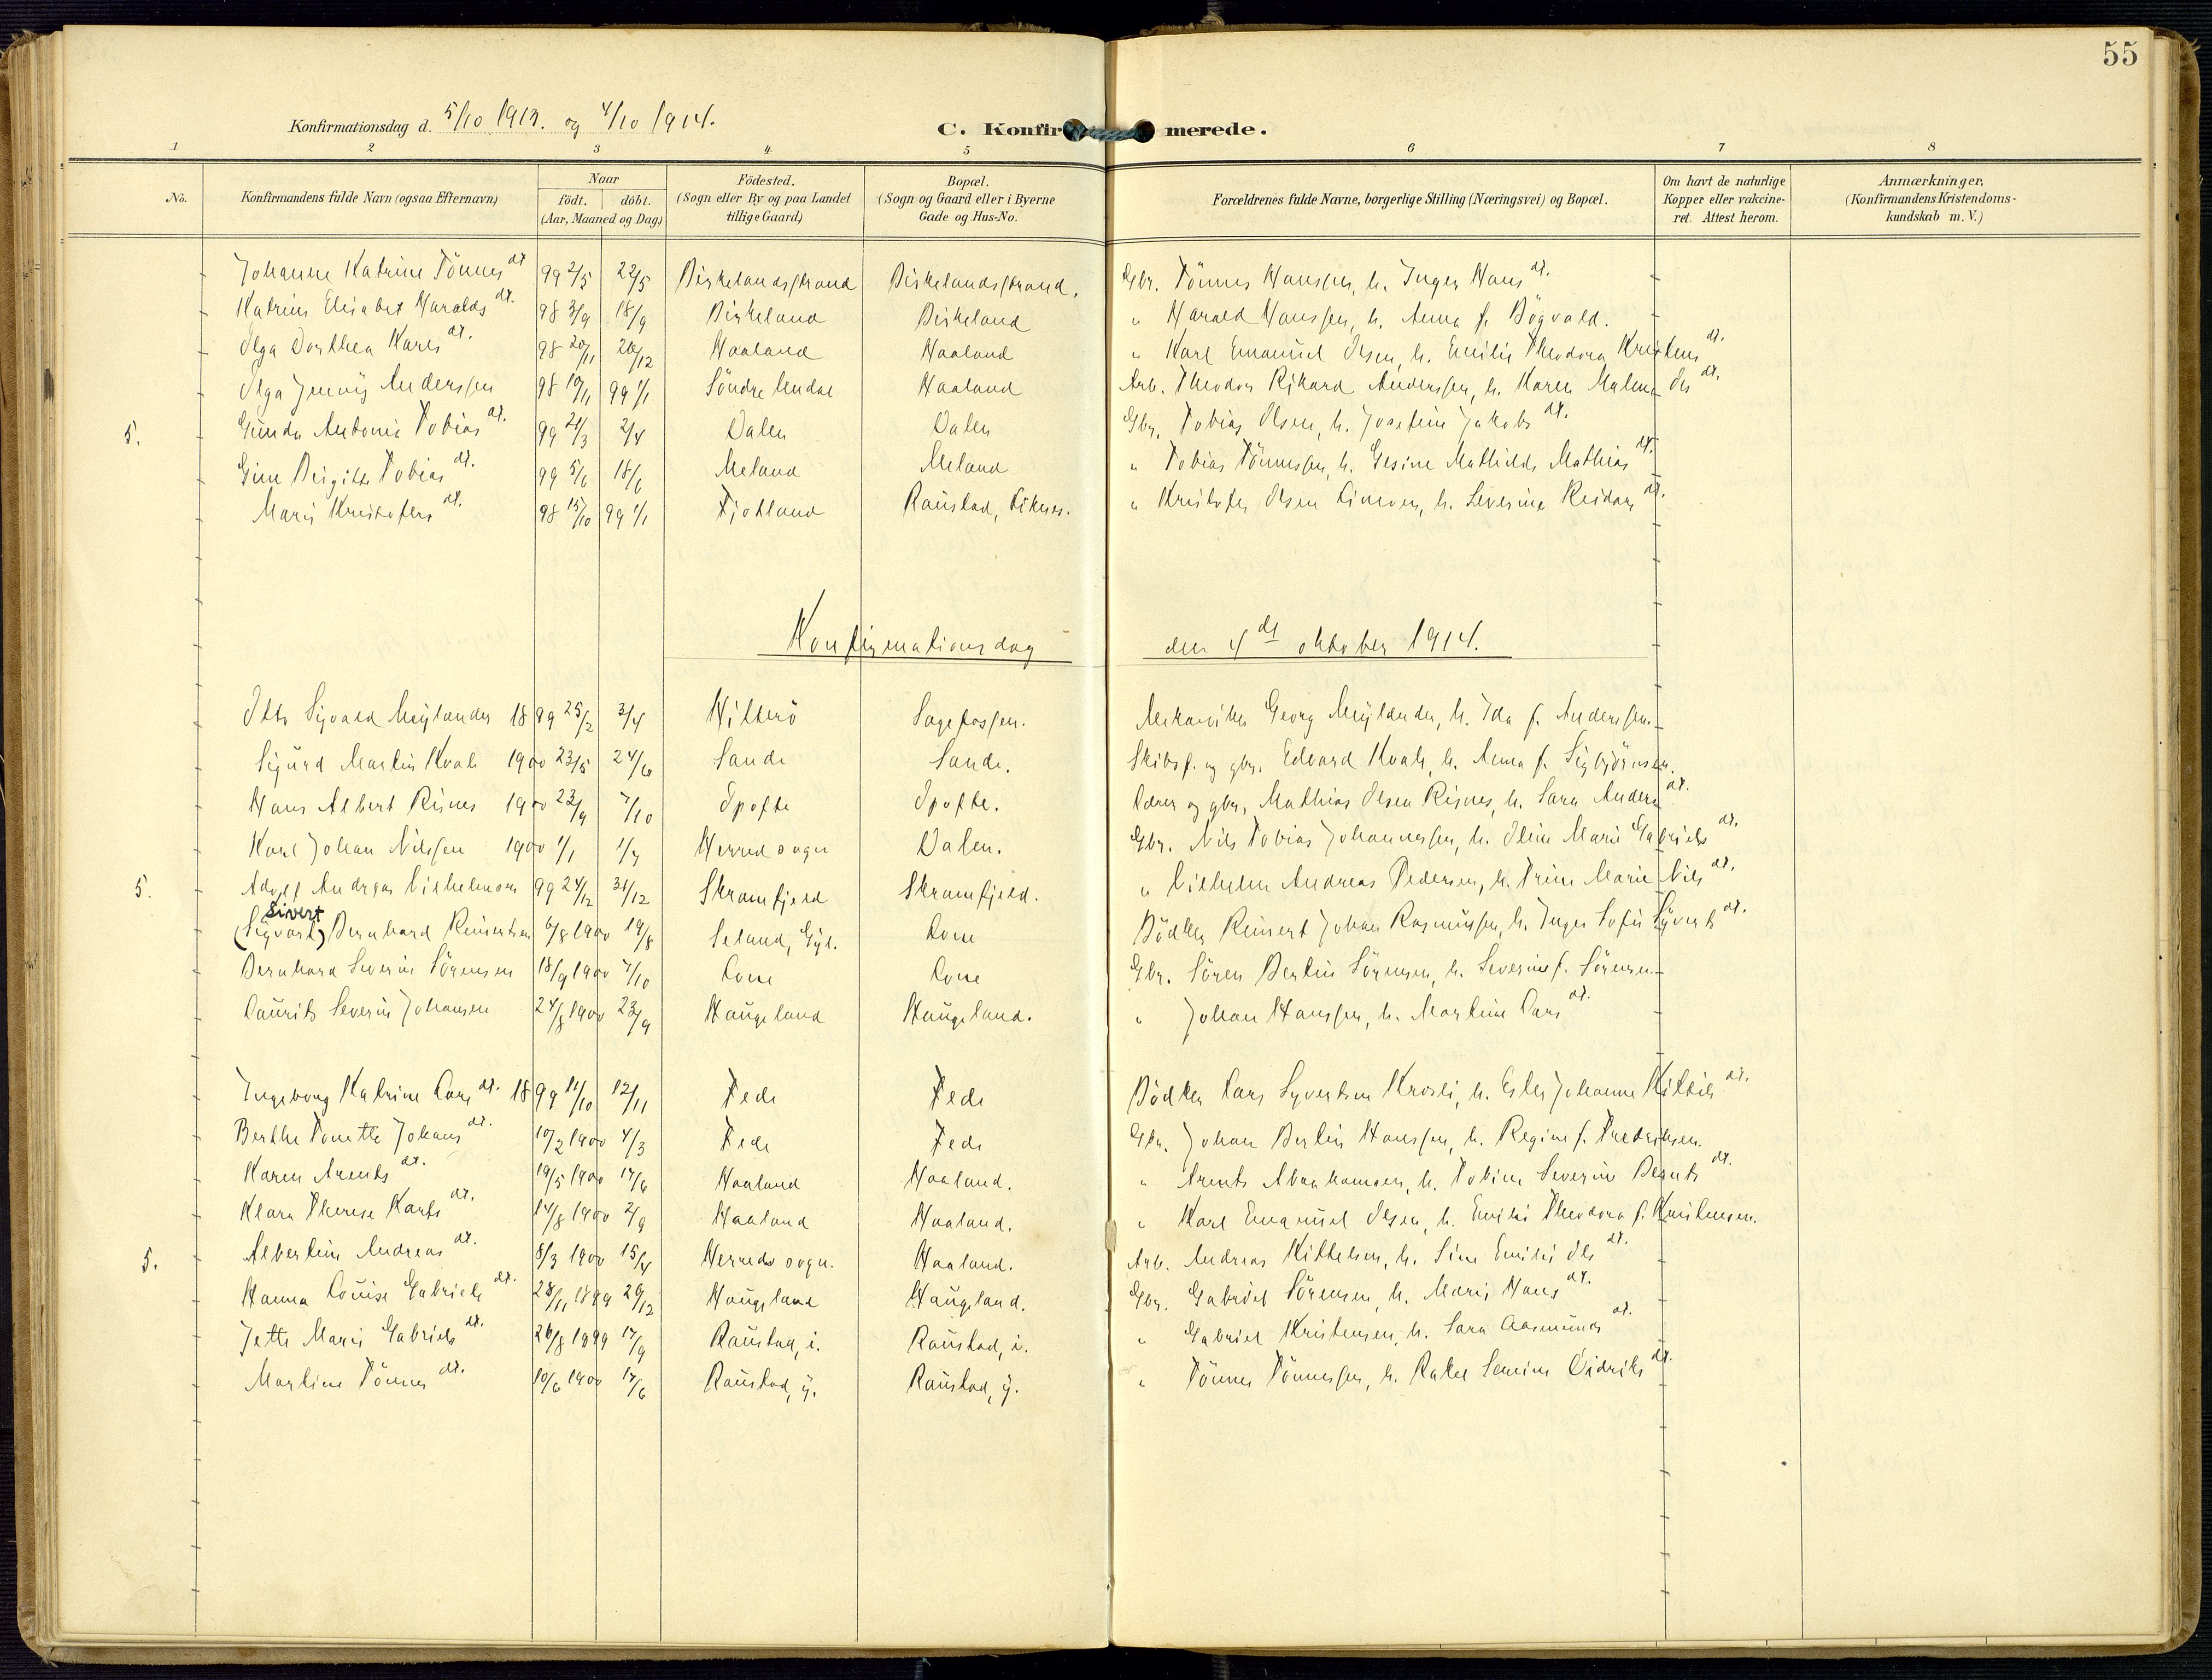 55
Konfirmationsdag d. 5/10 1913. og 4/10 1914.
C. Konfirmerede.
1 2 3 4 5 6 7 8
No. Konfirmandens fulde Navn (ogsaa Efternavn) Naar födt. döbt. (Aar, Maaned og Dag) Födested. (Sogn eller By og paa Landet tillige Gaard) Bopæl. (Sogn og Gaard eller i Byerne Gade og Hus-No. Forældrenes fulde Navne, borgerlige Stilling (Næringsvei) og Bopæl. Om havt de naturlige Kopper eller vakcineret. Attest herom. Anmærkninger, (Konfirmandens Kristendomskundskab m. V.)
Johanne Katrine Tönnes dt. 99 2/5 22/5 Birkelandsstrand Birkelandsstrand. Gbr. Tönnes Hanssen, h. Inger Hans dt.
Katrine Elisabet Haralds dt. 98 3/9 18/9 Birkeland Birkeland " Harald Hanssen, h. Anna f. Bögvald.
Olga Dorthea Karls dt. 98 20/11 26/12 Haaland Haaland " Karl Emanuel Olsen, h. Emilie Theodora Kristens dt.
Olga Jenny Anderssen 98 19/11 99 1/1 Söndre Undal Haaland Arb. Theodor Rikard Anderssen, h. Karen Malene Ols dt.
5. Gunda Antonie Tobias dt. 99 21/3 2/4 Dalen Dalen Gbr. Tobias Olsen, h. Josefine Jakobs dt.
Gine Birgitte Tobias dt. 99 5/6 18/6 Meland Meland " Tobias Tönnessen, h. Gesine Mathilde Mathias dt.
Marie Kristofers dt. 98 15/10 99 1/1 Fjotland Raustad, " Kristofer Olsen h. Severine Reidars dt.
Konfirmationsdag den 4de oktober 1914.
Otto Sigvald Mylander 1899 25/2 3/4 Hitterö Sagefossen. Mekaniker Georg Mylander, h. Ida f. Anderssen.
Sigurd Martin Kvale 1900 23/5 24/6 Sande Sande. Skibsf. og gbr. Edvard Kvale, h. Anna f. Sigbjörnsen.
Hans Albert Risnes 1900 23/9 7/10 Opofte Opofte. Lærer og gbr. Mathias Olsen Risnes, h. Sara Anders dt.
Karl Johan Nilssen 1900 1/1 1/4 Herred sogn Dalen. Gbr. Nils Tobias Johannessen, h. Oline Marie Gabriels dt.
5. Adolf Andreas Vilhelmsen 99 24/12 31/12 Skramfjeld Skramfjeld. " Vilhelm Andreas Pedersen, h. Trine Marie Nils dt.
Sivert
(Sigvart) Bernhard Reinertsen 6/8 1900 19/8 Seland, Gyl. Lone Bödker Reinert Johan Rasmussen, h. Inger Sofie Syverts dt.
Bernhard Severin Sörensen 18/9 1900 7/10 Lone Lone Gbr. Sören Bertin Sörensen, h. Severine f. Sörensen
Laurits Severin Johansen 24/8 1900 23/9 Haugeland Haugeland. " Johan Hanssen, h. Martine Lars dt.
Ingeborg Katrine Lars dt. 1899 11/10 12/11 Fede Fede Bödker Lars Syvertsen Krosli, h. Ester Johanne Kittils dt.
Berthe Tonette Johans dt. 10/2 1900 4/3 Fede Fede Gbr. Johan Bertin Hanssen, h. Regine f. Fredriksen.
Karen Arents dt. 19/5 1900 17/6 Haaland Haaland. " Arents Abrahamsen, h. Tobine Severine Bernts dt.
Klara Therese Karls dt. 14/8 1900 2/9 Haaland Haaland. " Karl Emanuel Olsen, h. Emilie Theodora f. Kristensen.
5. Albertine Andreas dt. 8/3 1900 15/4 Herreds sogn. Haaland. Arb. Andreas Kittelsen, h. Sine Emilie Ols dt.
Hanna Louise Gabriels dt. 28/11 1899 29/12 Haugeland Haugeland. Gbr. Gabriel Sörensen, h. Marie Hans dt.
Jette Marie Gabriels dt. 26/8 1899 17/9 Raustad, i. Raustad, i. " Gabriel Kristensen, h. Sara Aasmunds dt.
Martine Tönnes dt. 10/6 1900 17/6 Raustad, y. Raustad, y. " Tönnes Tönnessen, h. Rakel Samine Didriks dt.